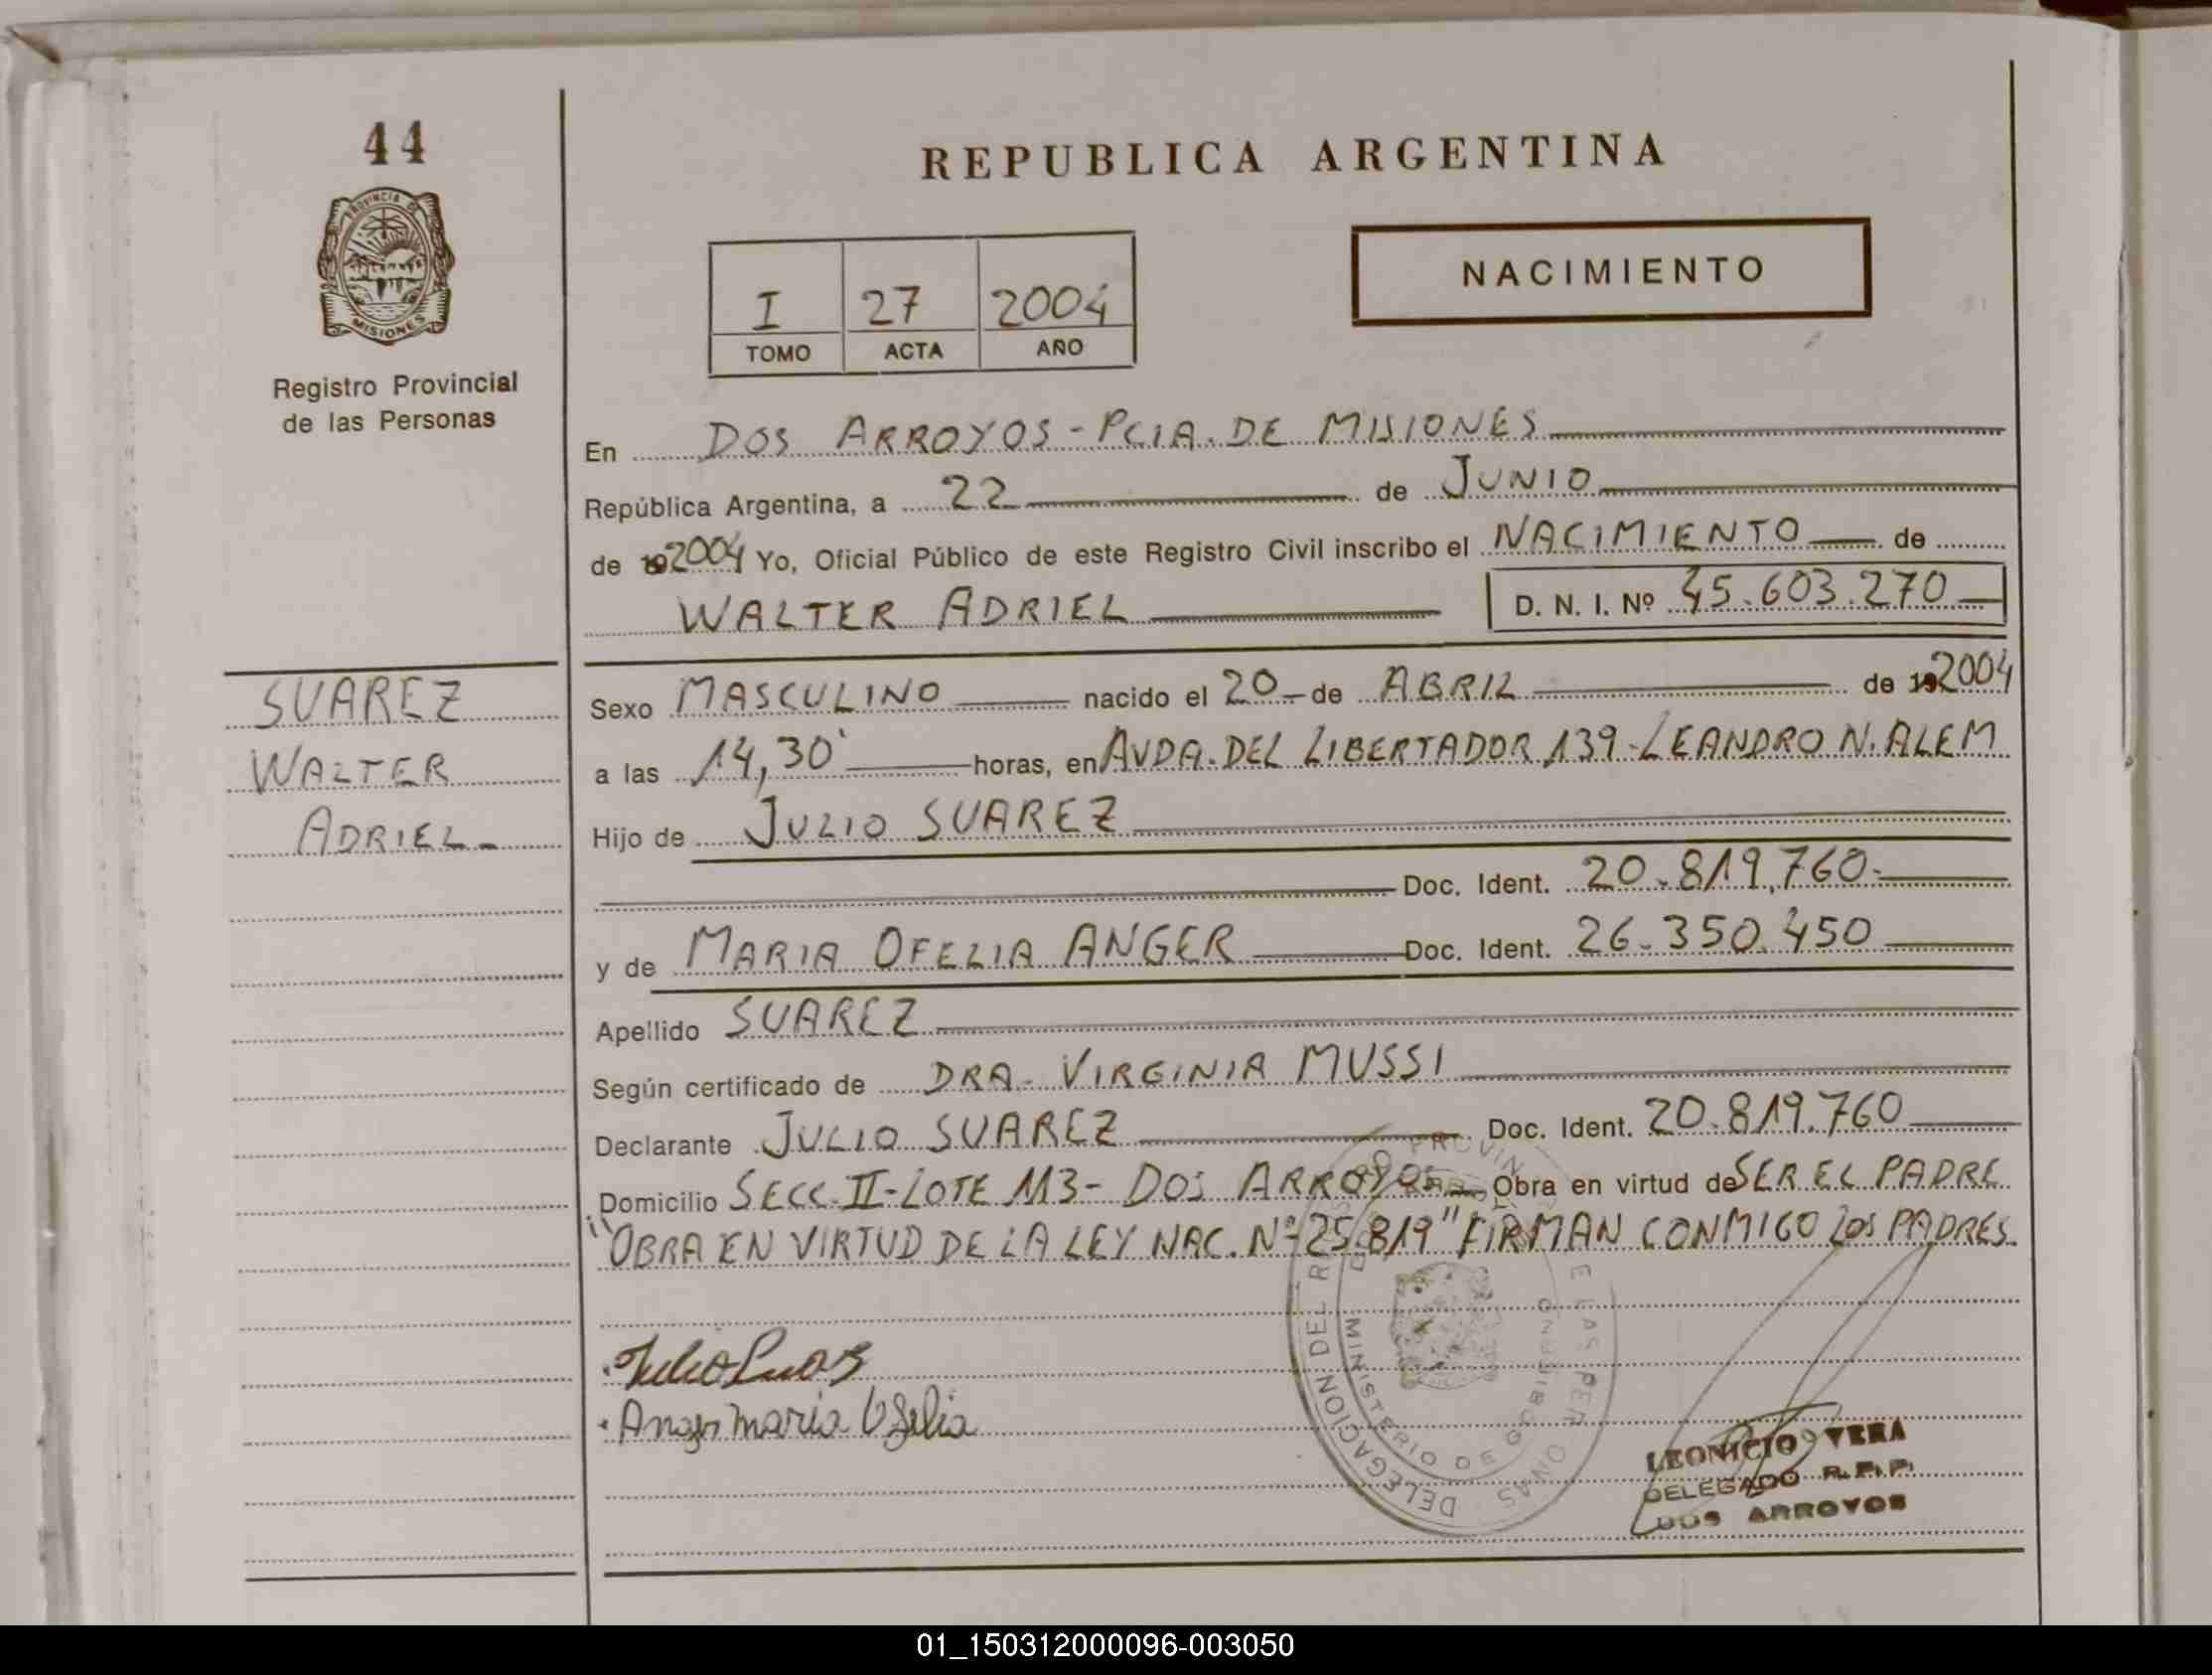 44
PROVINCIA DE
MISIONES
Registro Provincial
de las Personas
REPUBLICA ARGENTINA
I 27 2004
TOMO ACTA AÑO
NACIMIENTO
En DOS ARROYOS - PCIA. DE MISIONES
República Argentina, a 22 de JUNIO
de 192004 Yo, Oficial Público de este Registro Civil inscribo el NACIMIENTO de
WALTER ADRIEL D. N. I. Nº 45.603.270
SUAREZ
WALTER
ADRIEL-
Sexo MASCULINO nacido el 20 de ABRIL de 192004
a las 14,30' horas, en AVDA. DEL LIBERTADOR 139-LEANDRO N. ALEM
Hijo de JULIO SUAREZ
Doc. Ident. 20.819.760
y de MARIA OFELIA ANGER Doc. Ident. 26.350.450
Apellido SUAREZ
Según certificado de DRA. VIRGINIA MUSSI
Declarante JULIO SUAREZ Doc. Ident. 20.819.760
Domicilio SECC. II-LOTE 113- DOS ARROYOS Obra en virtud de SER EL PADRE
"OBRA EN VIRTUD DE LA LEY NAC. Nº 25.819" FIRMAN CONMIGO LOS PADRES.
DELEGACION DEL REGISTRO PROVINCIAL DE LAS PERSONAS
MINISTERIO DE GOBIERNO
Anger maria Ofelia
LEONICIO VERA
DELEGADO R. P. P.
DOS ARROYOS
01_150312000096-003050